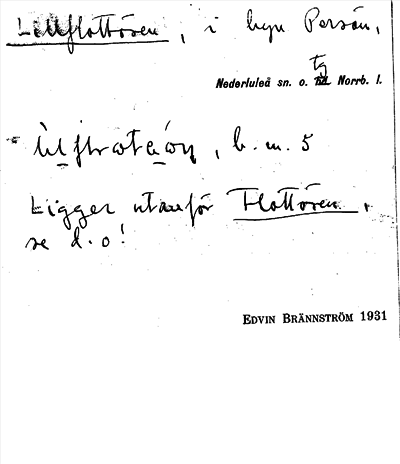 Lillflottören, i byn Persön,
Nederluleå sn. o. tg Norrb. l.
b.m. 5
Ligger utanför Flottören,
se d.o!
EDVIN BRÄNNSTRÖM 1931